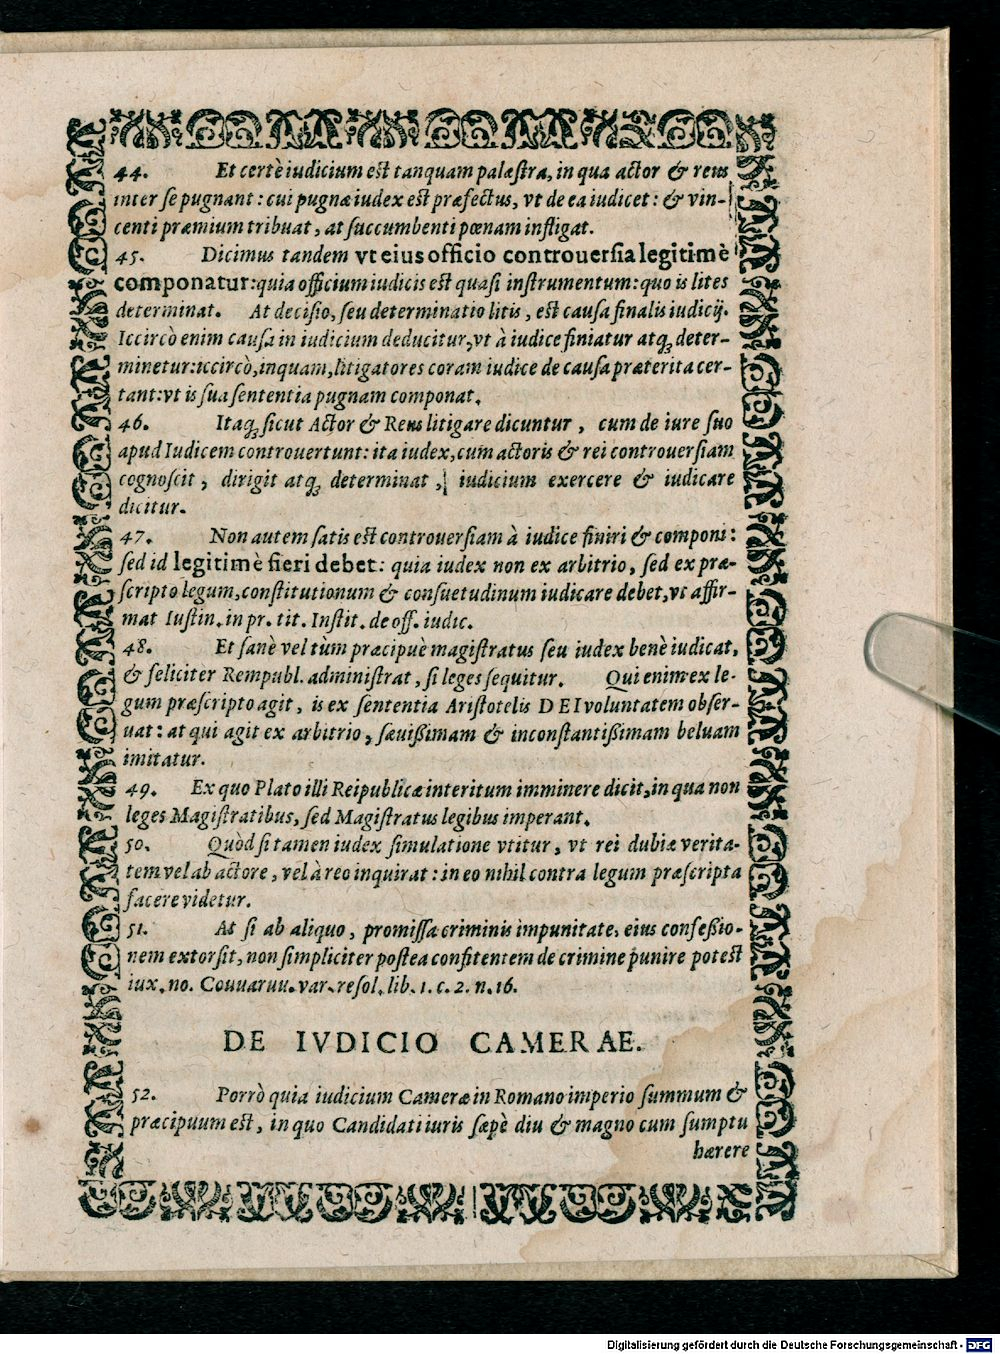 44. Et certè iudicium est tanquam palæstra, in qua actor & reus
inter se pugnant: cui pugnæ iudex est præfectus, vt de ea iudicet: & vin-
centi præmium tribuat, at succumbenti pœnam infligat.
45. Dicimus tandem vt eius officio controuersia legitimè
componatur: quia officium iudicis est quasi instrumentum: quo is lites
determinat. At decisio, seu determinatio litis, est causa finalis iudicij.
Iccircò enim causa in iudicium deducitur, vt à iudice finiatur atq; deter-
minetur: iccircò, inquam, litigatores coram iudice de causa præterita cer-
tant: vt is sua sententia pugnam componat.
46. Itaq; sicut Actor & Reus litigare dicuntur, cum de iure suo
apud Iudicem controuertunt: ita iudex, cum actoris & rei controuersiam
cognoscit, dirigit atq; determinat, iudicium exercere & iudicare
dicitur.
47. Non autem satis est controuersiam à iudice finiri & componi:
sed id legitimè fieri debet: quia iudex non ex arbitrio, sed ex præ-
scripto legum, constitutionum & consuetudinum iudicare debet, vt affir-
mat Iustin. in pr. tit. Instit. de off. iudic.
48. Et sanè vel tùm præcipuè magistratus seu iudex benè iudicat,
& feliciter Rempubl. administrat, si leges sequitur. Qui enim ex le-
gum præscripto agit, is ex sententia Aristotelis DEI voluntatem obser-
uat: at qui agit ex arbitrio, sæuißimam & inconstantißimam beluam
imitatur.
49. Ex quo Plato illi Reipublicæ interitum imminere dicit, in qua non
leges Magistratibus, sed Magistratus legibus imperant.
50. Quòd si tamen iudex simulatione vtitur, vt rei dubiæ verita-
tem vel ab actore, vel à reo inquirat: in eo nihil contra legum præscripta
facere videtur.
51. At si ab aliquo, promissa criminis impunitate, eius confeßio-
nem extorsit, non simpliciter postea confitentem de crimine punire potest
iux. no. Couuaruu. var. resol. lib. 1. c. 2. n. 16.
DE IVDICIO CAMERAE.
52. Porrò quia iudicium Cameræ in Romano imperio summum &
præcipuum est, in quo Candidati iuris sæpè diu & magno cum sumptu
hærere
Digitalisierung gefördert durch die Deutsche Forschungsgemeinschaft - DFG